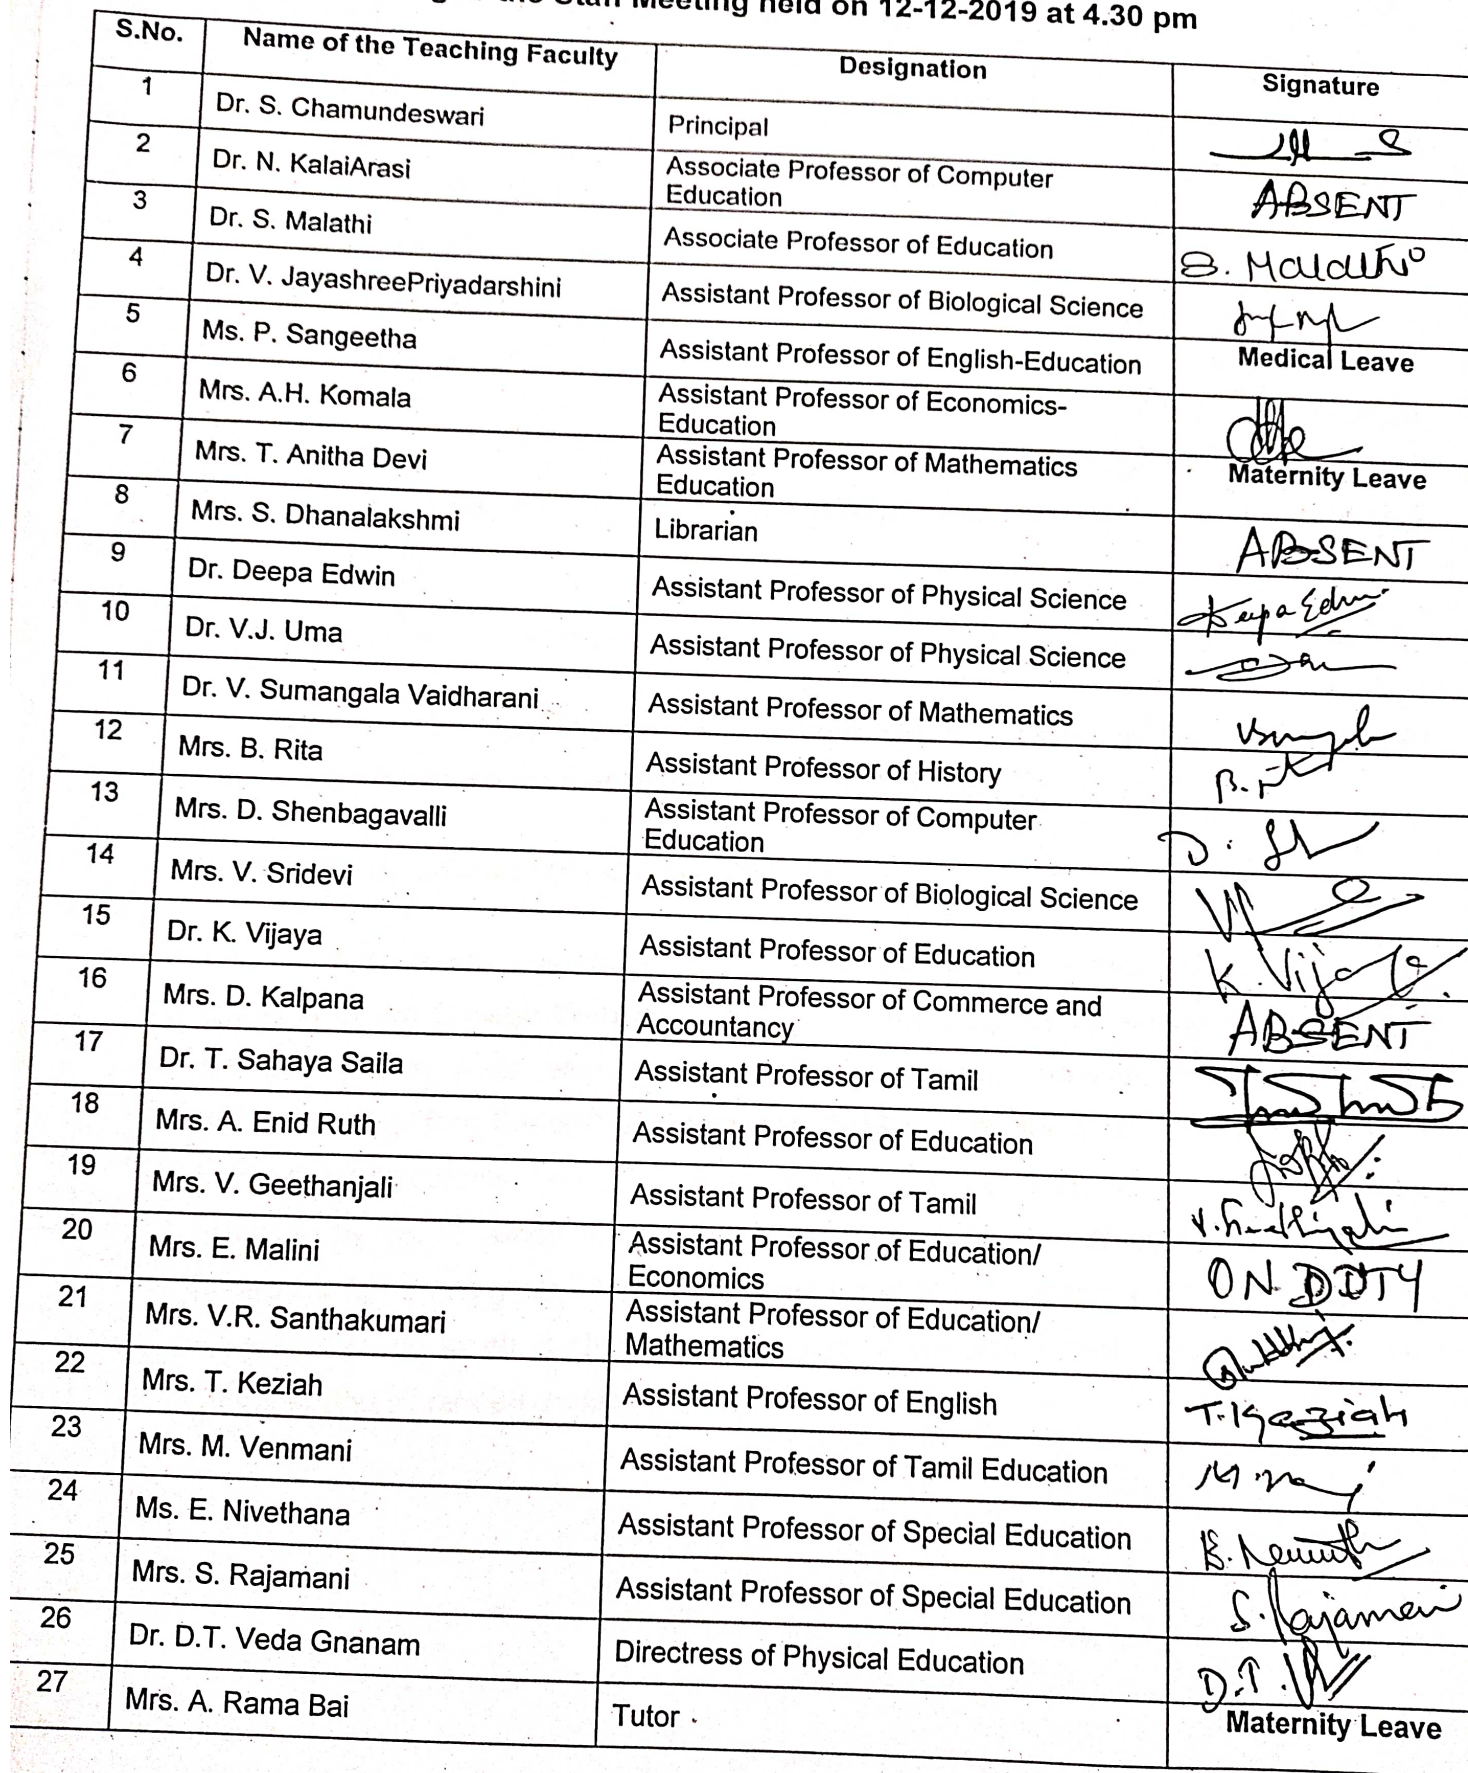 Meeting held on 12-12-2019 at 4.30 pm
S.No. Name of the Teaching Faculty Designation Signature
1 Dr. S. Chamundeswari Principal
2 Dr. N. KalaiArasi Associate Professor of Computer
Education ABSENT
3 Dr. S. Malathi Associate Professor of Education S. Malathi
4 Dr. V. JayashreePriyadarshini Assistant Professor of Biological Science
5 Ms. P. Sangeetha Assistant Professor of English-Education Medical Leave
6 Mrs. A.H. Komala Assistant Professor of Economics-
Education
7 Mrs. T. Anitha Devi Assistant Professor of Mathematics
Education Maternity Leave
8 Mrs. S. Dhanalakshmi Librarian ABSENT
9 Dr. Deepa Edwin Assistant Professor of Physical Science Deepa Edwin
10 Dr. V.J. Uma Assistant Professor of Physical Science
11 Dr. V. Sumangala Vaidharani Assistant Professor of Mathematics
12 Mrs. B. Rita Assistant Professor of History
13 Mrs. D. Shenbagavalli Assistant Professor of Computer
Education
14 Mrs. V. Sridevi Assistant Professor of Biological Science
15 Dr. K. Vijaya Assistant Professor of Education K. Vijaya
16 Mrs. D. Kalpana Assistant Professor of Commerce and
Accountancy ABSENT
17 Dr. T. Sahaya Saila Assistant Professor of Tamil
18 Mrs. A. Enid Ruth Assistant Professor of Education
19 Mrs. V. Geethanjali Assistant Professor of Tamil V. Geethanjali
20 Mrs. E. Malini Assistant Professor of Education/
Economics ON DUTY
21 Mrs. V.R. Santhakumari Assistant Professor of Education/
Mathematics
22 Mrs. T. Keziah Assistant Professor of English T. Keziah
23 Mrs. M. Venmani Assistant Professor of Tamil Education
24 Ms. E. Nivethana Assistant Professor of Special Education
25 Mrs. S. Rajamani Assistant Professor of Special Education S. Rajamani
26 Dr. D.T. Veda Gnanam Directress of Physical Education D.T.
27 Mrs. A. Rama Bai Tutor Maternity Leave